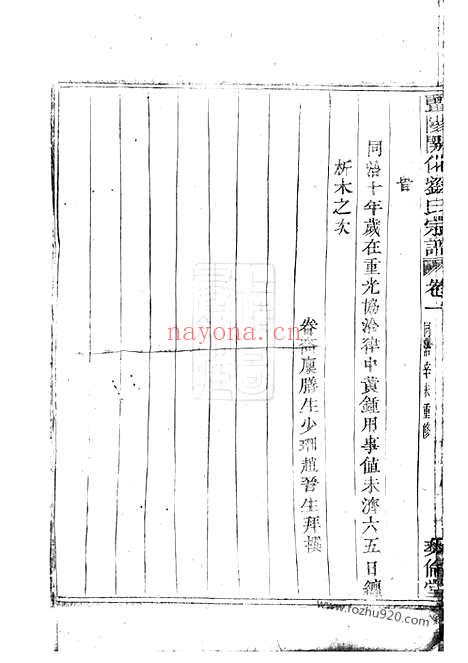 豐陵開化劉氏宗譜 卷一 同治辛未重修
彝倫堂
旹
同治十年歲在重光協洽律中黃鍾用事值未濟六五日纏
析木之次
眷 廩膳生少 趙 生拜撰
nayona.cn
www.fozhu920.com